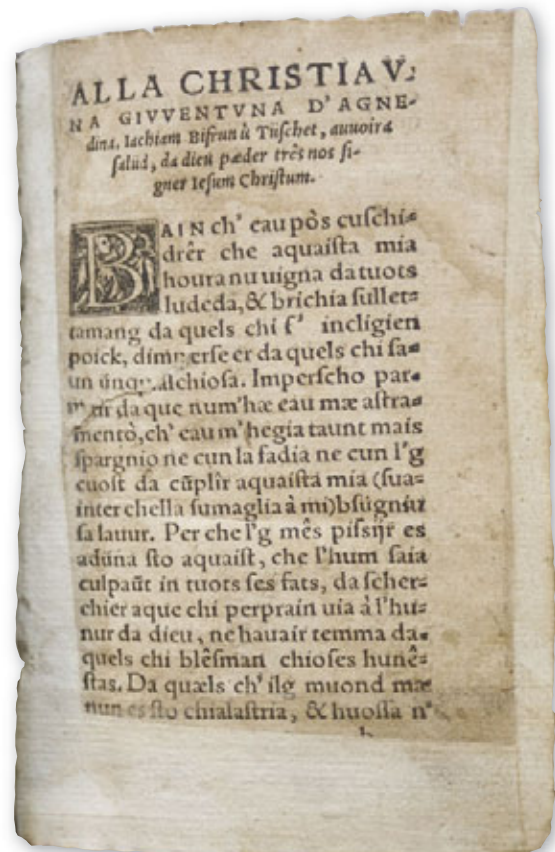 ALLA CHRISTIAV:
NA GIVVENTVNA D'AGNE-
dina. Iachiam Bifrun ù Tüschet, auuoira
salüd, da dieu pæder três nos si-
gner Iesum Christum.
BAIN ch' eau pòs cuschi-
drêr che aquaista mia
houra nu uigna da tuots
ludeda, & brichia sullet-
tamang da quels chi s' incligien
poick, dimperse er da quels chi sa-
un chiosa. Imperscho par-
da que num'hæ eau mæ astra-
mentò, ch' eau m'hegia taunt mais
spargnio ne cun la fadia ne cun l'g
cuost da cũplîr aquaista mia (sua-
inter chella sumaglia à mi) bsügniu
sa lauur. Per che l'g mês pissijr es
adüna sto aquaist, che l'hum saia
culpaũt in tuots ses fats, da scher-
chier aque chi perprain uia à l'hu-
nur da dieu, ne hauair temma da-
quels chi blêsman chioses hunê-
stas. Da quæls ch' ilg muond mæ
nun es sto chialastria, & huossa n'
b